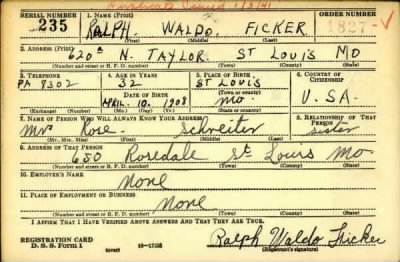 Duplicate Issued 1/3/41
SERIAL NUMBER 1. NAME (Print) ORDER NUMBER
235 RALPH WALDO FICKER
(First) (Middle) (Last)
2. ADDRESS (Print)
N. TAYLOR ST LOUIS MO
(Number and street or R. F. D. number) (Town) (County) (State)
3. TELEPHONE 4. AGE IN YEARS 5. PLACE OF BIRTH 6. COUNTRY OF CITIZENSHIP
PA 8302 32 ST LOUIS
DATE OF BIRTH (Town or county)
APRIL. 10. 1908 MO. U.S.A.
(Exchange) (No.) (Mo.) (Day) (Yr.) (State or country)
7. NAME OF PERSON WHO WILL ALWAYS KNOW YOUR ADDRESS 8. RELATIONSHIP OF THAT PERSON
Mrs Rose Schreiter Sister
(Mr., Mrs., Miss) (First) (Middle) (Last)
9. ADDRESS OF THAT PERSON
650 Rosedale St Louis Mo
(Number and street or R. F. D. number) (Town) (County) (State)
10. EMPLOYER'S NAME
None
11. PLACE OF EMPLOYMENT OR BUSINESS
None
(Number and street or R. F. D. number) (Town) (County) (State)
I AFFIRM THAT I HAVE VERIFIED ABOVE ANSWERS AND THAT THEY ARE TRUE.
REGISTRATION CARD
D. S. S. Form 1 (over) 16-17105
Ralph Waldo Ficker
(Registrant's signature)